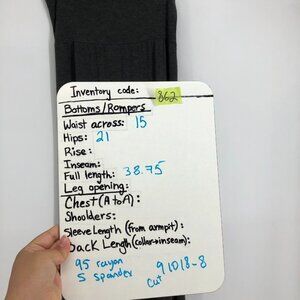 Inventory code: 862
Bottoms/Rompers
Waist across: 15
Hips: 21
Rise:
Inseam:
Full length: 38.75
Leg opening:
Chest (A to A):
Shoulders:
Sleeve Length (from armpit):
Back Length (collar→inseam):
95 rayon
5 spandex
91018-8